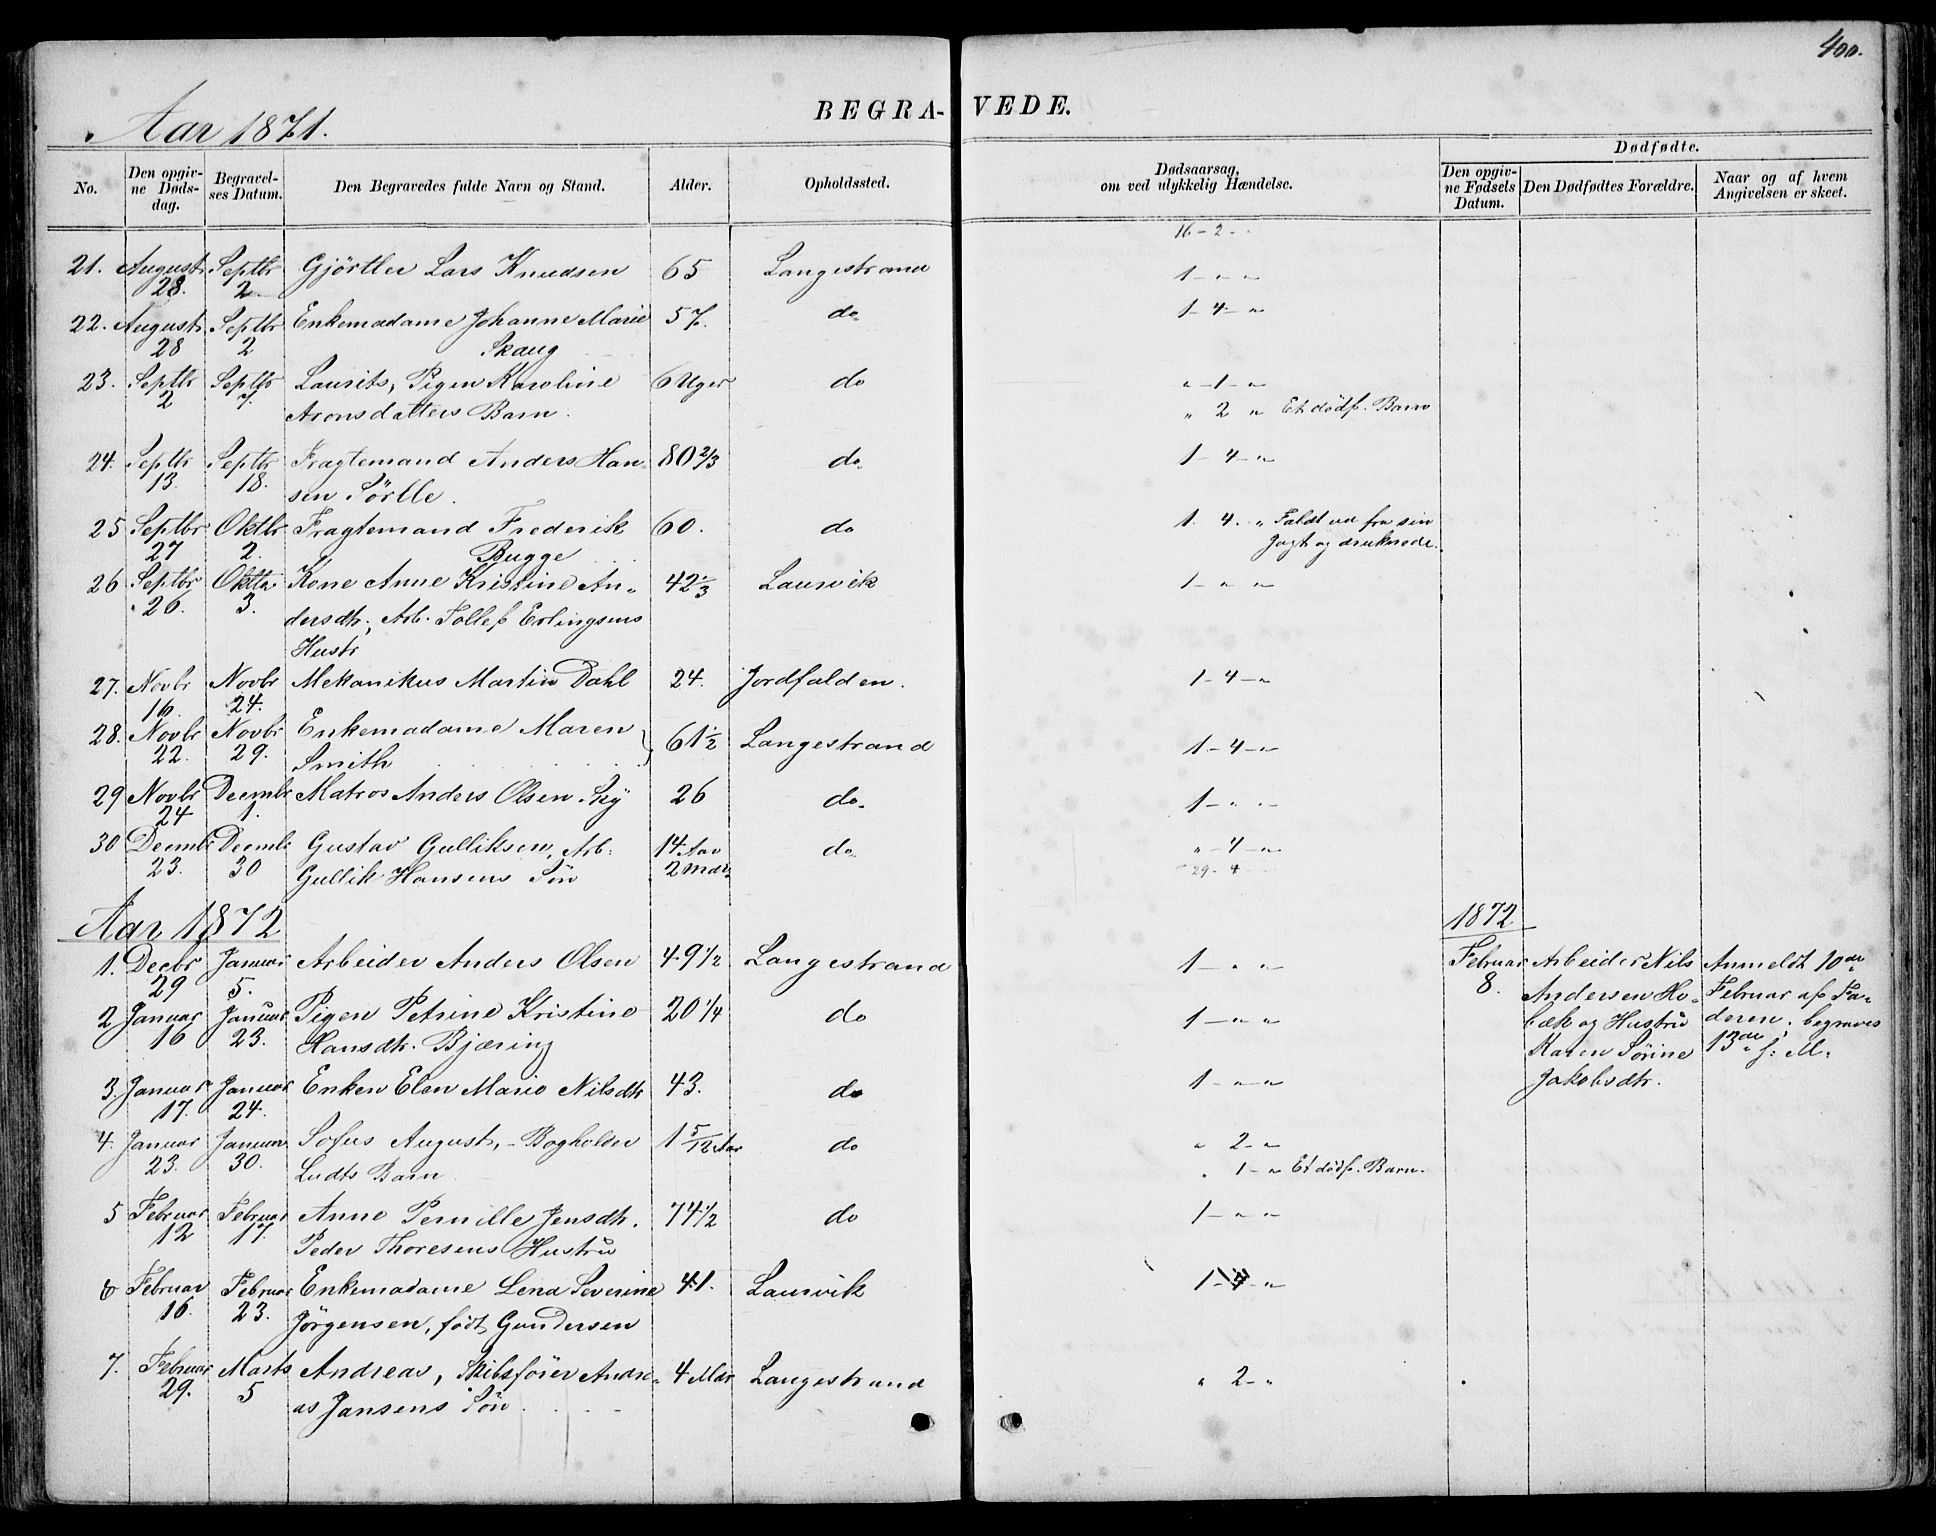 400.
Aar 1871.
BEGRA-VEDE.
No.
Den opgivne Dødsdag.
Begravelses Datum.
Den Begravedes fulde Navn og Stand.
Alder.
Opholdssted.
Dødsaarsag,
om ved ulykkelig Hændelse.
Dødfødte.
Den opgivne Fødsels Datum.
Den Dødfødtes Forældre.
Naar og af hvem Angivelsen er skeet.
16 - 2 - "
21. August Septbr Gjörtler Lars Knudsen 65 Langestrand 1 - " "
28. 2
22. August Septbr Enkemadame Johanne Marie 57. do 1 - 4 - "
28 2 Skaug
23. Septbr Septbr Laurits, Pigen Karoline 6 Uger do " - 1 - "
2 7. Aronsdatters Barn. " 2 " Et dödf. Barn
24. Septbr Septbr Fragtemand Anders Han- 80 2/3 do 1 - 4 - "
13. 18. sen Sörlle.
25 Septbr Oktbr Fragtemand Frederik 60. do 1. 4. " Faldt ud fra sin
27 2. Bugge Jagt og druknede.
26 Septbr Oktbr Kone Anne Kristine An- 42 1/3 Laurvik 1 - " "
26. 3. dersdtr., Arb. Tollef Erlingsens
Hustr
27. Novbr Novbr Mekanikus Martin Dahl 24. Jordfalden. 1 - 4 - "
16. 24.
28. Novbr Novbr Enkemadame Maren 61 1/2 Langestrand 1 - 4 - "
22. 29. Smith
29 Novbr Decmbr Matros Anders Olsen Sky 26 do. 1 - " "
24 1.
30 Decmbr Decmbr Gustav Gulliksen, Arb. 14 Aar do " - 4 - "
23. 30 Gullik Hansens Sön 2 Mdr. 29 - 4 -
Aar 1872
1872
1. Decbr Januar Arbeider Anders Olsen 49 1/2 Langestrand 1 - " " Februar Arbeider Nils Anmeldt 10de
29 5. 8. Andersen Ho- Februar af Fa-
2 Januar Januar Pigen Petrine Kristine 20 1/4 do 1 - " " bæk og Hustru deren, begraves
16 23. Hansdtr. Bjæring Karen Sörine 13de s: M.
3. Januar Januar Enken Elen Marie Nilsdtr 43. do 1 - " " Jakobsdtr.
17. 24.
4. Januar Januar Sofus August, - Bogholder 1 5/12 Aar do " 2 - "
23. 30. Ludts Barn " 1 - " Et dödf. Barn.
5 Februar Februar Anne Pernille Jensdtr. 74 1/2 do 1 - " "
12 17. Peder Thoresens Hustru
6 Februar Februar Enkemadame Lena Severine 41. Laurvik 1 - 4 - "
16. 23. Jörgensen, födt Gundersen
7. Februar Marts Andreas, Skibsförer Andre- 4 Mdr Langestrand " 2 - "
29. 5 as Jansens Sön